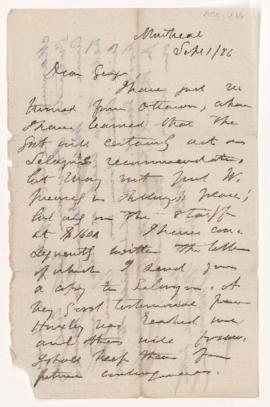 Montreal
Sept 1/86
Dear George,
I have just re
turned from Ottawa, where
I have learned that the
Govt will certainly act on
Selwyn's recommendation,
but may not put W.
in place;
but on the staff
at I have con
sequently written the letter
of which I send you
a copy to Selwyn. A
very good testimonial from
Huxley has reached me
and others will follow.
I shall keep them for
future contingencies.